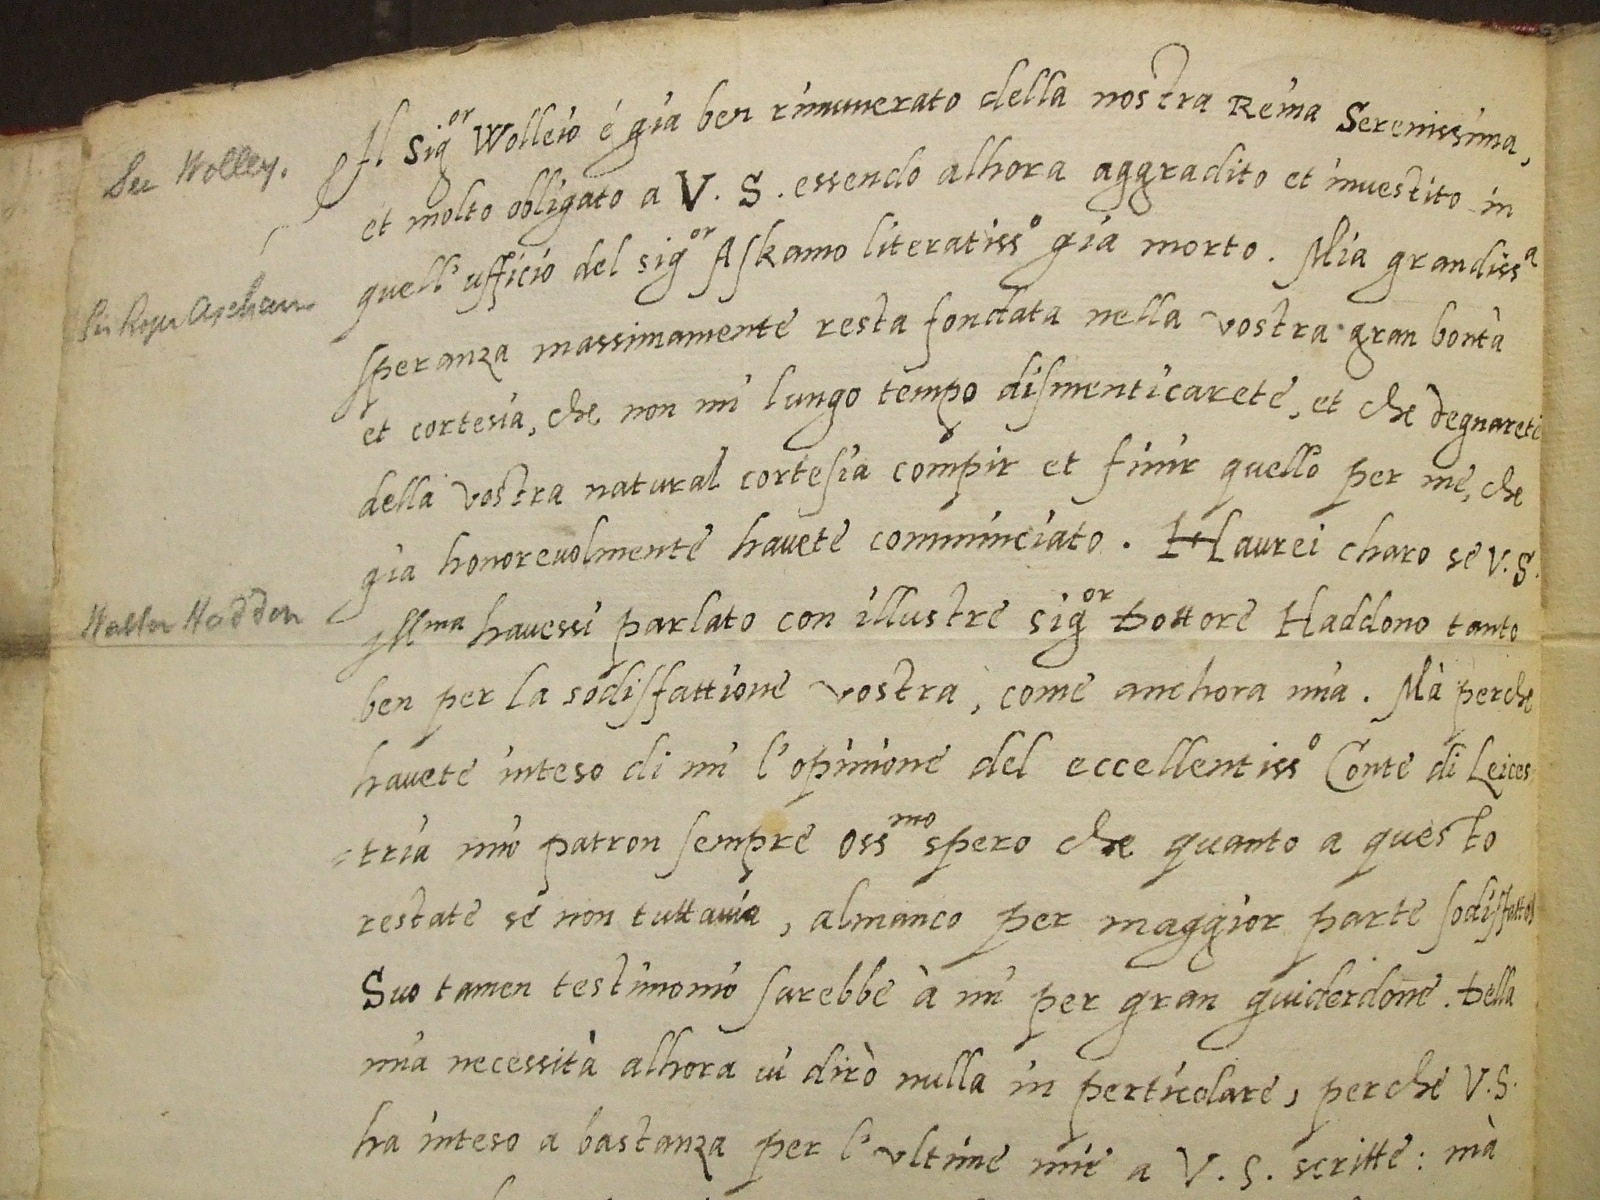 Il Sig^or Wolleio é gia ben rimunerato della nostra Reina Serenissima,
Wolley.
et molto obligato a V. S. essendo alhora aggradito et investito in
quell' ufficio del sig^or Askamo literatiss^o gia morto. Mia grandiss^a
Sir Roger Ascham
speranza massimamente resta fondata nella vostra gran bontà
et cortesia, che non mi lungo tempo dismenticarete, et che degnarete
della vostra natural cortesia compir et finir quello per me, che
gia honorevolmente havete comminciato. Haurei charo se V. S.
Walter Haddon
Ill^ma havessi parlato con illustre sig^or Dottore Haddono tanto
ben per la sodisfattione vostra, come anchora mia. Mà perche
havete inteso di mi l'opinione del eccellentiss^o Conte di Leices
=tria mio patron sempre oss^mo spero che quanto a questo
restate se non tuttavia, almanco per maggior parte sodisfatto
Suo tamen testimonio sarebbe à mi per gran guiderdone. Della
mia necessità alhora vi dirò nulla in perticolare, perche V. S.
ha inteso a bastanza per l'ultime mie a V. S. scritte: mà